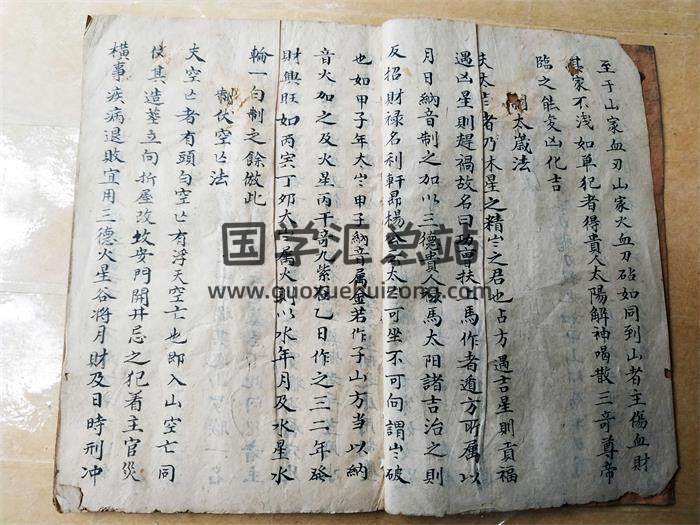 至于山家血刃山家火血刃砧如同到山者主傷血財
家不浅如単犯者得貴人太陽解神喝散三竒尊帝
臨之能変凶化吉
制太歳法
夫太岁者乃木星之精岁之君也占方遇吉星則貢福
遇凶星則趕禍故名曰 扶 馬作者遁方所属以
月日納音制之加以三德貴人禄馬太阳諸吉治之則
反招財禄名利軒昂楊公 太 可坐不可向謂岁破
也如甲子年太岁甲子納音属金若作子山方當以納
音火加之及火星丙干竒九紫在乙日作之三二年發
財興旺如丙寅丁夘太岁属火則以水年月及水星水
輪一白制之餘倣此
制伏空亡法
夫空亡者有頭白空亡有浮天空亡也即入山空亡同
伩其造葬立向折屋改坟安門開井忌之犯着主官災
橫事疾病退敗宜用三德火星谷将月財及日時刑冲
国学汇总站
www.guoxuehuizong.com